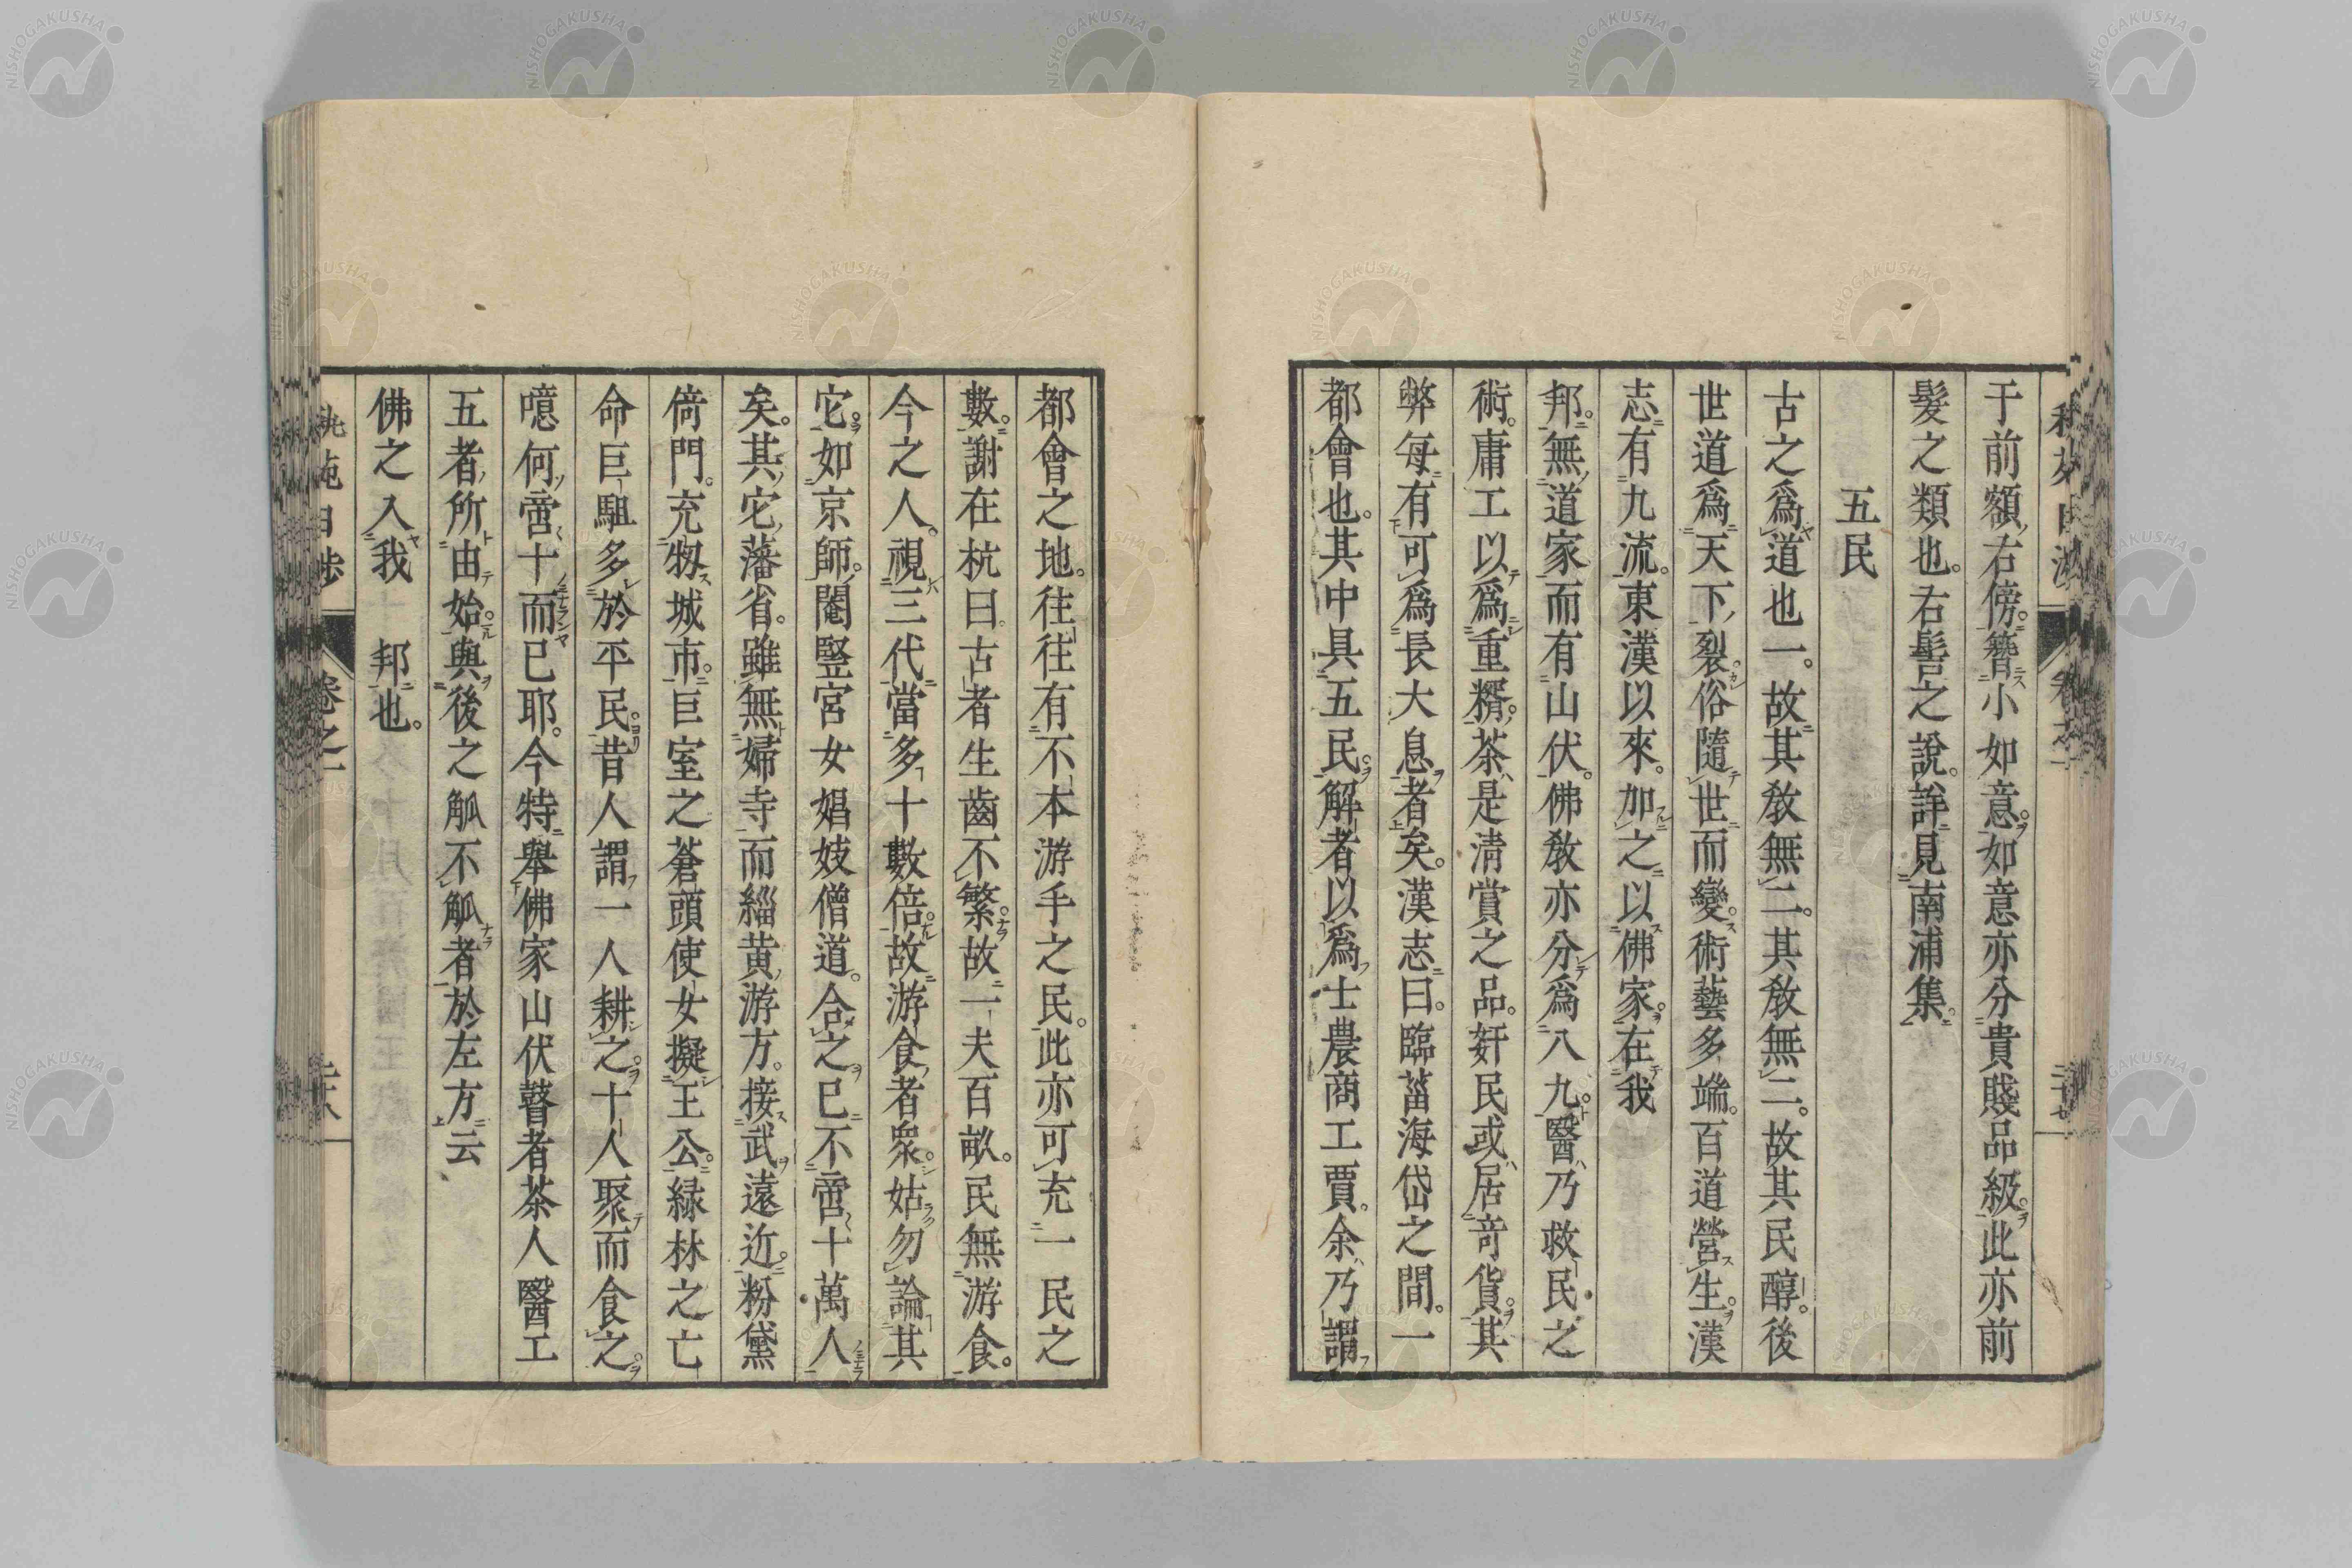 于前額右傍。簪小如意。如意亦分貴賤品級。此亦前
髮之類也。右髻之說。詳見南浦集。
五民
古之爲道也一。故其敎無二。其敎無二。故其民醇。後
世道爲天下裂。俗隨世而變。術藝多端。百道營生。漢
志有九流。東漢以來。加之以佛家。在我
邦。無道家而有山伏。佛敎亦分爲八九。醫乃救民之
術。庸工以爲重糈。茶是淸賞之品。奸民或居奇貨。其
弊每有可爲長大息者矣。漢志曰。臨菑海岱之間。一
都會也。其中具五民。解者以爲士農商工賈。余乃謂
都會之地。往往有不本游手之民。此亦可充一民之
數。謝在杭曰。古者生齒不繁。故一夫百畝。民無游食。
今之人。視三代當多十數倍。故游食者衆。姑勿論其
它。如京師。閹豎宮女娼妓僧道。合之已不啻十萬人
矣。其它藩省。雖無婦寺而緇黃游方。接武遠近。粉黛
倚門。充牣城市。巨室之蒼頭使女擬王公。綠林之亡
命巨駔多於平民。昔人謂一人耕之。十人聚而食之。
噫何啻十而已耶。今特擧佛家山伏瞽者茶人醫工
五者。所由始。與後之觚不觚者於左方云
佛之入我 邦也。
卷之一